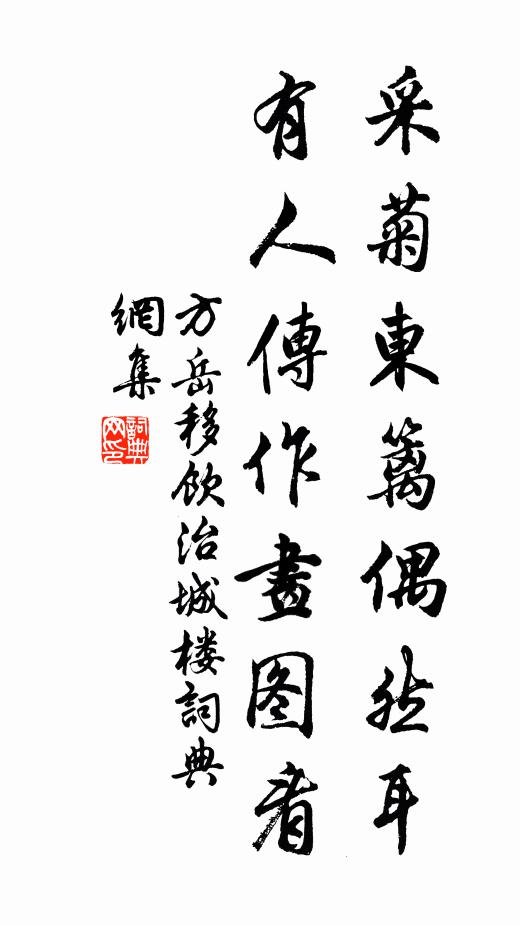 采菊東篱偶然耳
有人傳作畫图看
方岳移飲治城楼詞典
網集
詞典网印